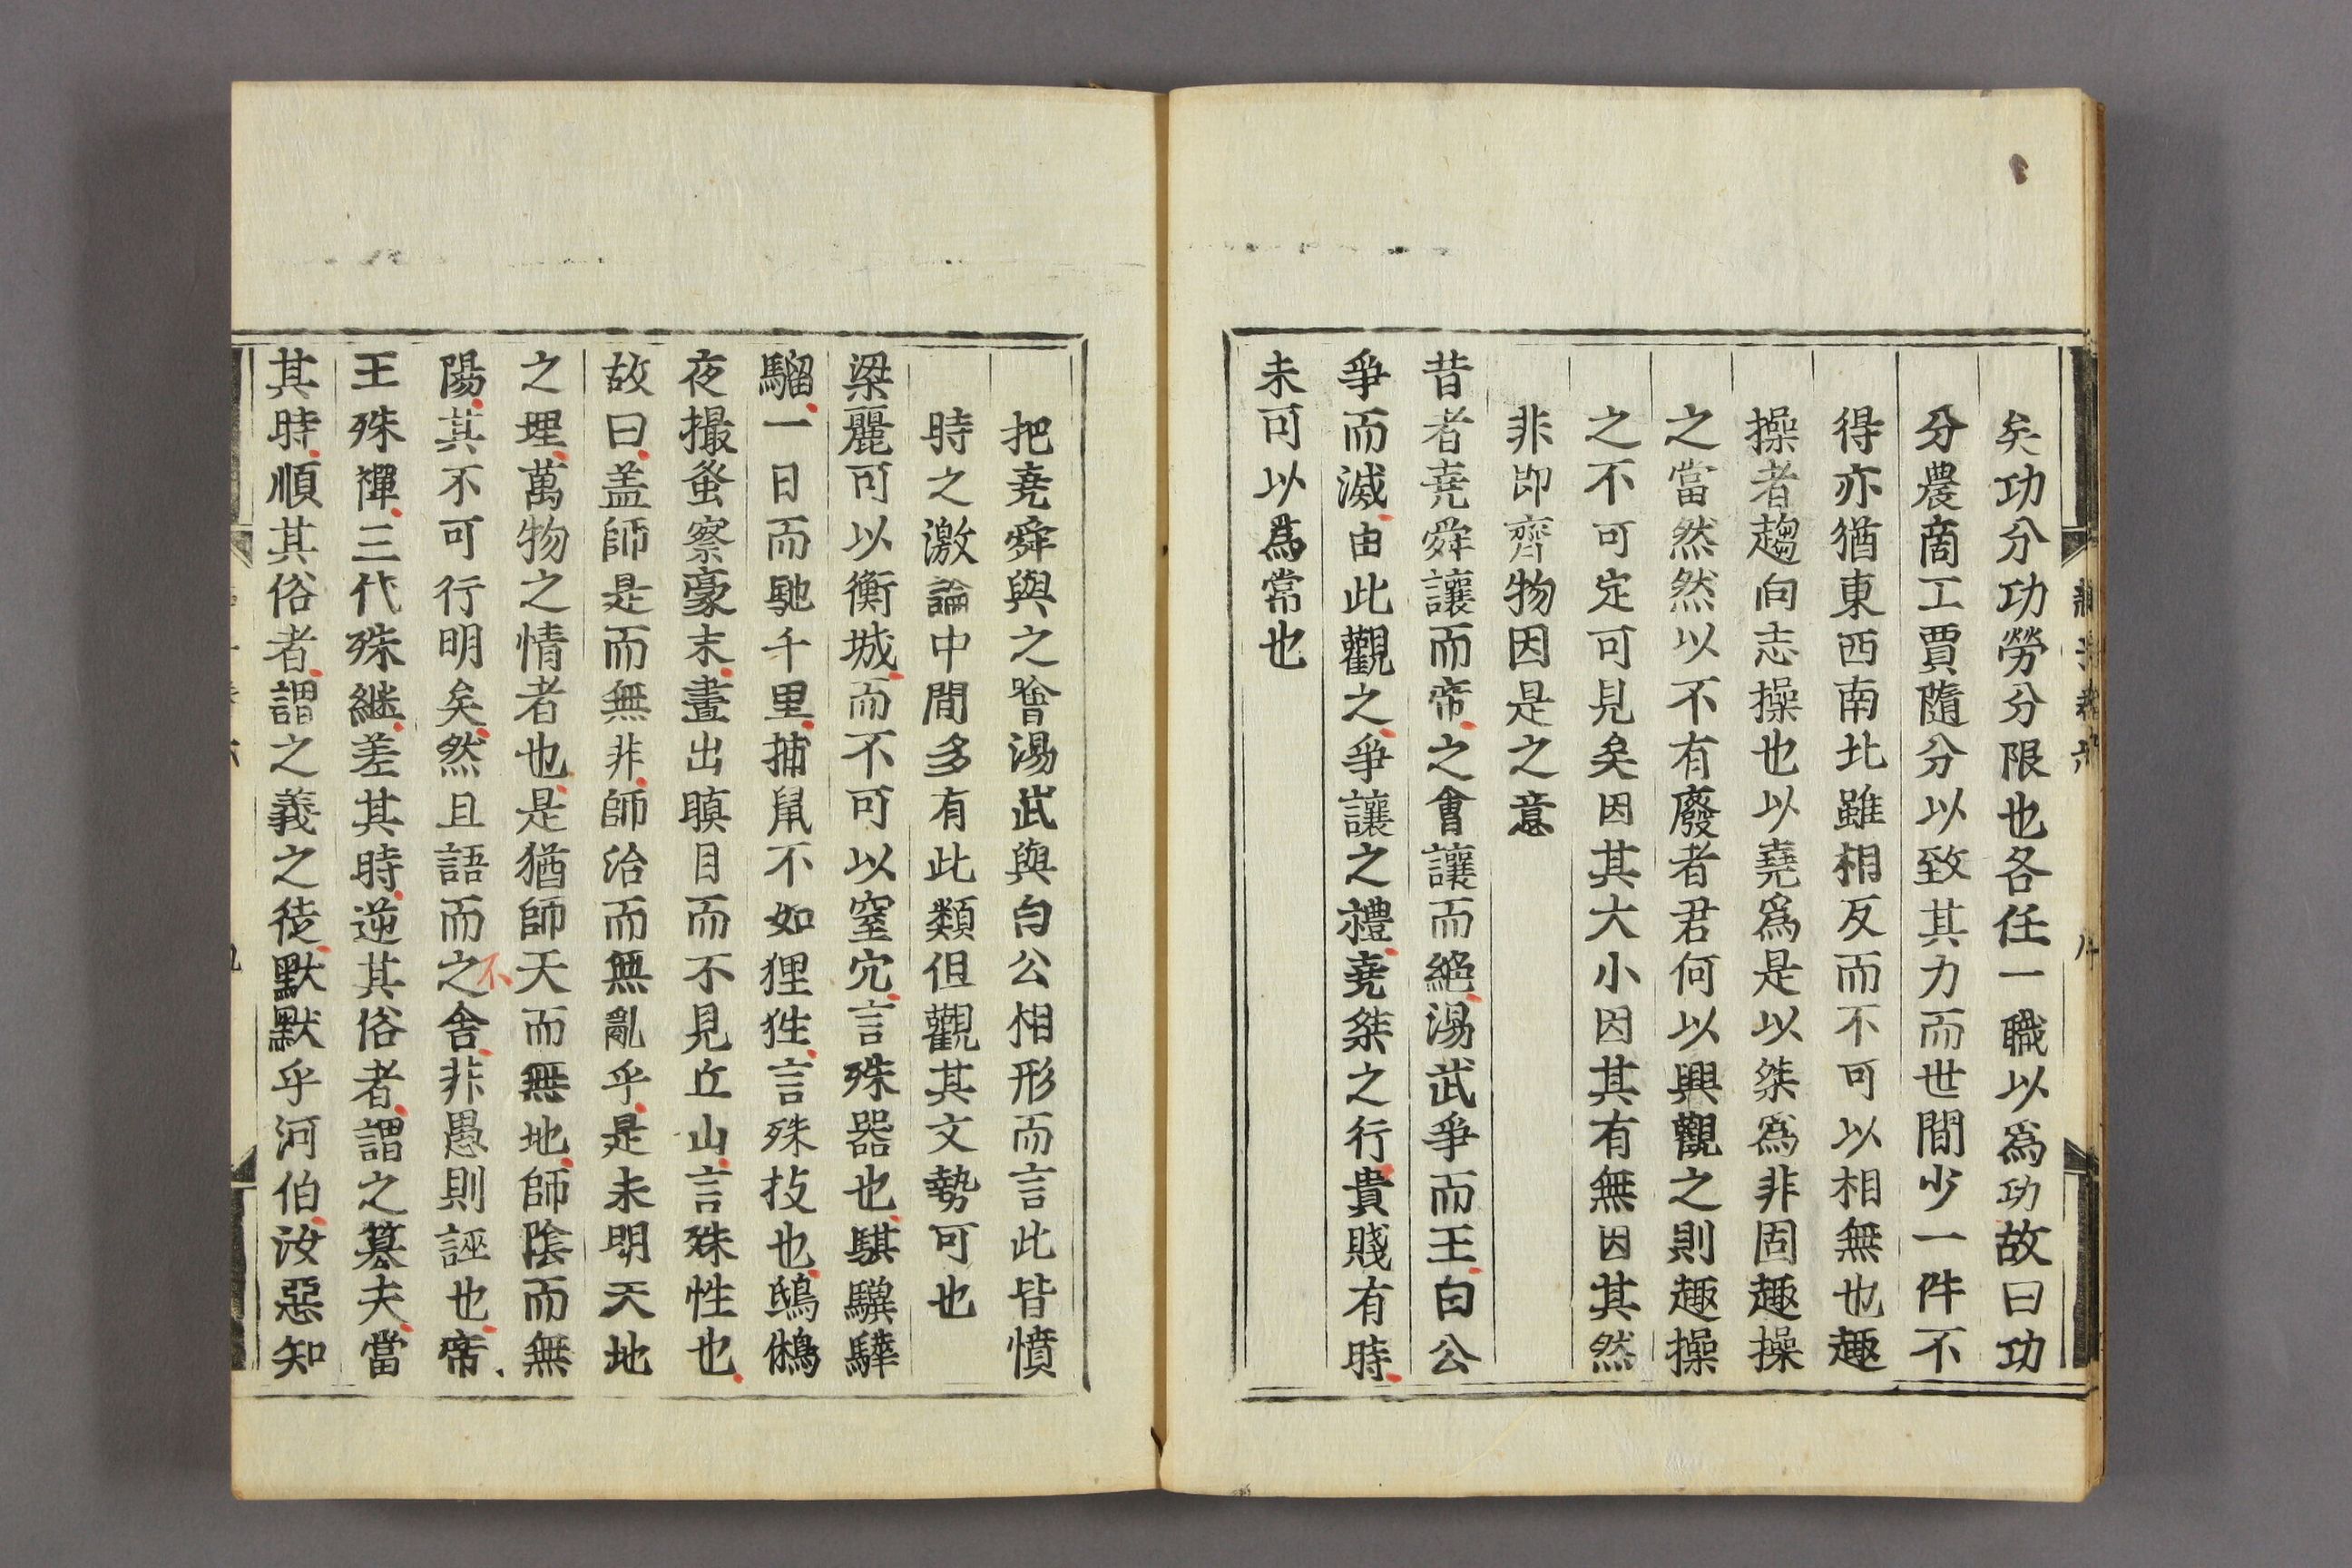 矣功分功勞分限也各任一職以爲功故曰功
分農商工賈隨分以致其力而世間少一件不
得亦猶東西南北雖相反而不可以相無也趣
操者趨向志操也以堯爲是以桀爲非固趣操
之當然然以不有廢者君何以興觀之則趣操
之不可定可見矣因其大小因其有無因其然
非即齊物因是之意
昔者堯舜讓而帝之會讓而絕湯武爭而王白公
爭而滅由此觀之爭讓之禮堯桀之行貴賤有時
未可以爲常也
把堯舜與之噲湯武與白公相形而言此皆憤
時之激論中間多有此類但觀其文勢可也
梁麗可以衝城而不可以窒穴言殊器也騏驥驊
騮一日而馳千里捕鼠不如狸狌言殊技也鴟鵂
夜撮蚤察豪末晝出瞋目而不見丘山言殊性也
故曰盖師是而無非師治而無亂乎是未明天地
之理萬物之情者也是猶師天而無地師陰而無
陽其不可行明矣然且語而之不舍非愚則誣也帝
王殊禪三代殊継差其時逆其俗者謂之篡夫當
其時順其俗者謂之義之徒默默乎河伯汝惡知